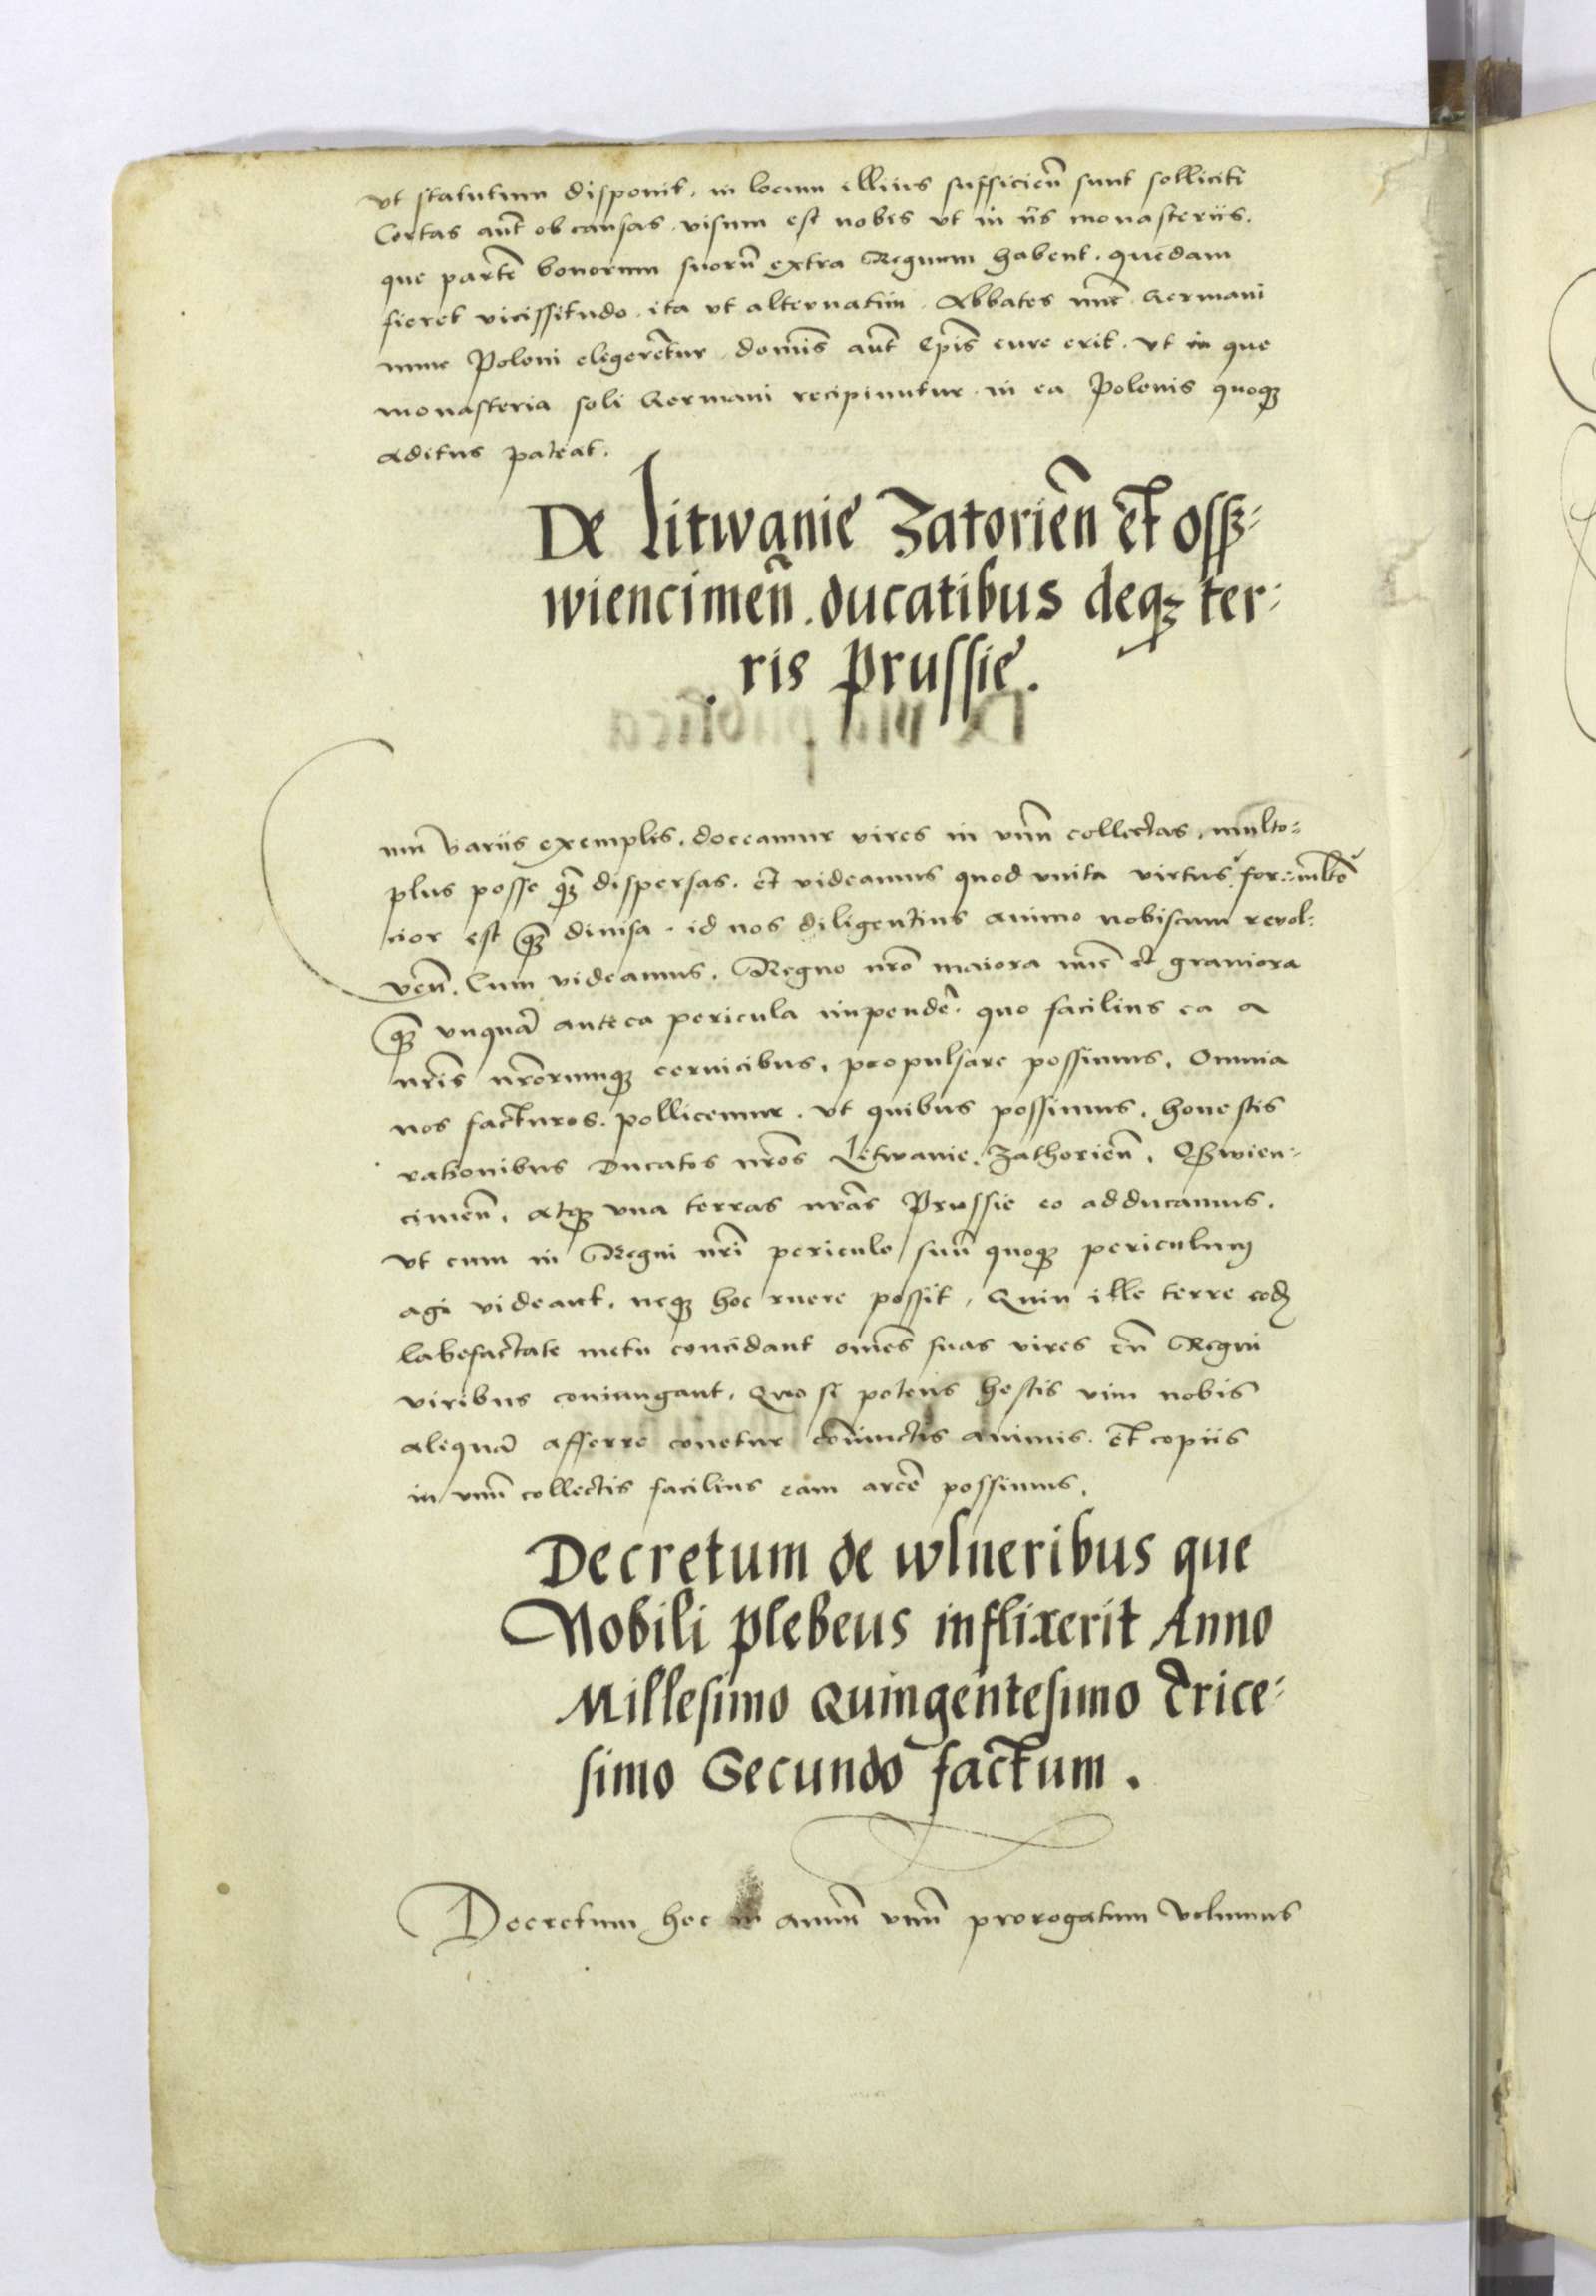 vt statutum disponit. in locum illius sufficień sunt solliciti
Certas aūt ob causas. visum est nobis vt in iis monasteriis.
que partē bonorum suorū extra Regnum habent. quedam
fieret vicissitudo. ita vt alternatim. Abbates nūc. Germani
nunc Poloni eligerētur. dominis aūt Ep̄is cure erit. vt in que
monasteria soli Germani recipiuntur. in ea Polonis quoqȝ
aditus pateat.
De Litwanie Zatorień et ossß-
wiencimeñ. ducatibus deqȝ ter-
ris Prussie.
um variis exemplis. doceamur vires in vnū collectas. multo-
plus posse qȝ̄ dispersas. et videamus quod vnita virtus for- mltō
cior est qȝ̄ diuisa. id nos diligentius animo nobiscum revol-
veñ. Cum videamus. Regno nr̄o maiora nūc et grauiora
qȝ̄ vnquā antea pericula impendē. quo facilius ea a
nr̄is nr̄orumqȝ ceruicibus. propulsare possimus. Omnia
nos facturos. pollicemur. vt quibus possimus. honestis
rationibus Ducatos nr̄os Litwanie. Zathorień. Oßwien-
cimeñ. atqȝ vna terras nr̄as Prussie eo adducamus.
vt cum in Regni nr̄i periculo suū quoqȝ periculum
agi videant. neqȝ hoc ruere possit. Quin ille terre eodȝ
labefactate metu concidant om̄es suas vires cū Regni
viribus coniungant. Quo si potens hostis vim nobis
aliquā afferre conetur coniunctis animis. et copiis
in vnū collectis facilius eam arcē possimus.
Decretum de wlneribus que
Nobili plebeus inflixerit Anno
Millesimo Quingentesimo trice-
simo Secundo factum.
Decretum hoc in annū vnū prorogatum volumus